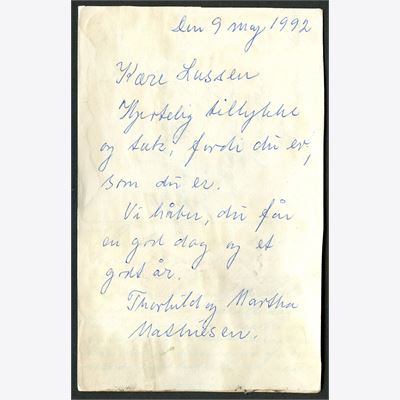 Den 9 maj 1992
Kære Lassen
Hjertelig tillykke
og tak, fordi du er,
som du er.
Vi håber, du får
en god dag og et
godt år.
Thorhild og Martha
Mathiesen.